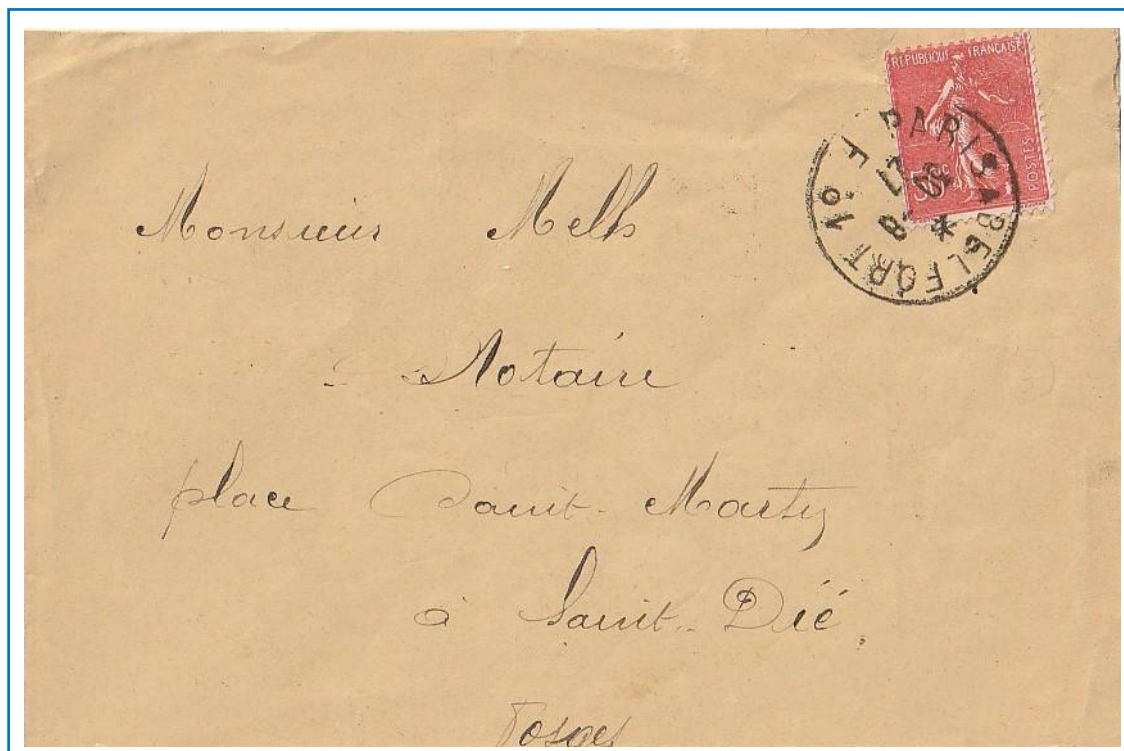 RÉPUBLIQUE FRANÇAISE
POSTES
50c
PARIS A BELFORT 1° F
17
8-
30
*
Monsieur Melh
Notaire
place Saint-Martin
à Saint-Dié
Vosges